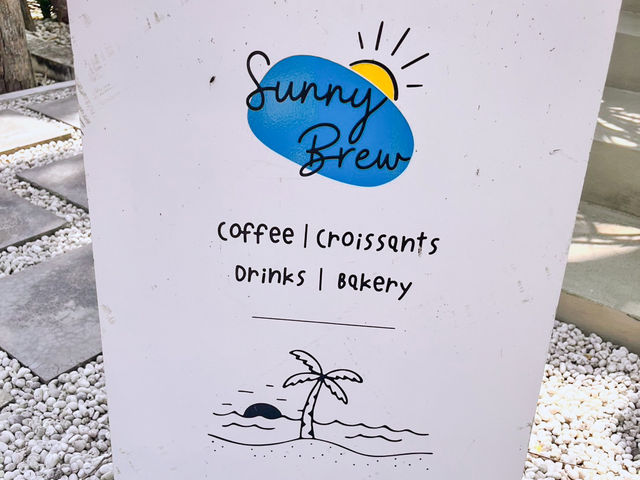 Sunny
Brew
Coffee | Croissants
Drinks | Bakery